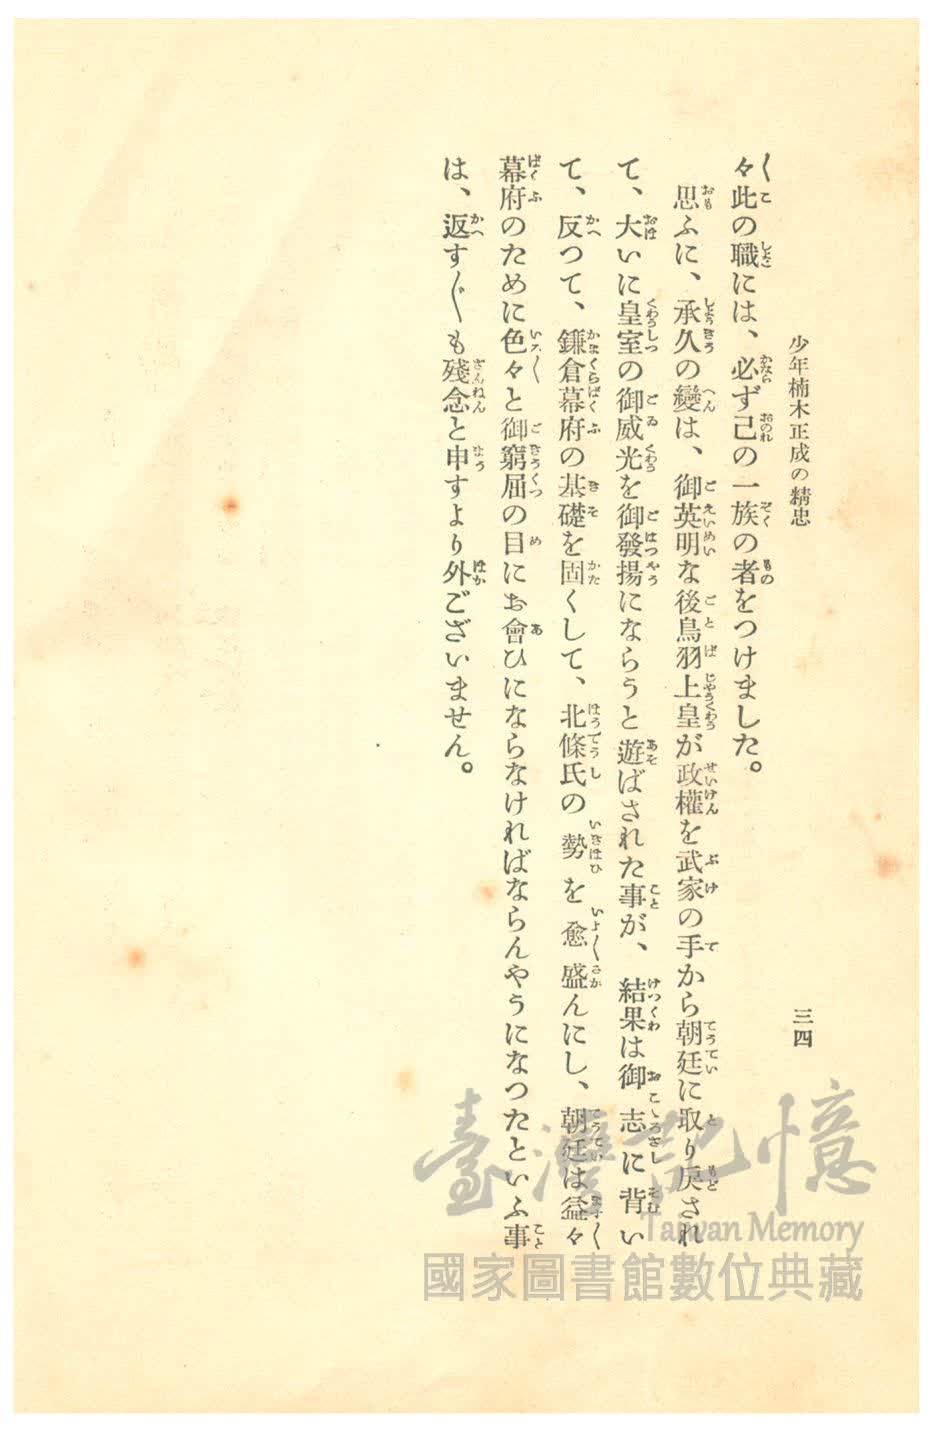 少年楠木正成の精忠
三四
々此の職には、必ず己の一族の者をつけました。
思ふに、承久の變は、御英明な後鳥羽上皇が政權を武家の手から朝廷に取り戾され
て、大いに皇室の御威光を御發揚にならうと遊ばされた事が、結果は御志に背い
て、反つて、鎌倉幕府の基礎を固くして、北條氏の勢を愈盛んにし、朝廷は益々
幕府のために色々と御窮屈の目にお會ひにならなければならんやうになつたといふ事
は、返す〴〵も殘念と申すより外ございません。
臺灣記憶
Taiwan Memory
國家圖書館數位典藏